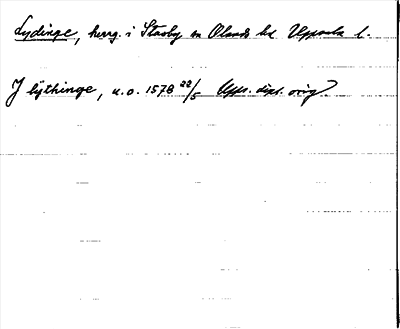 Lydinge, herrg. i Stavby sn Olands hd Uppsala l.
J lÿthinge, u.o. 1578 22/5 Upps. dipl. orig